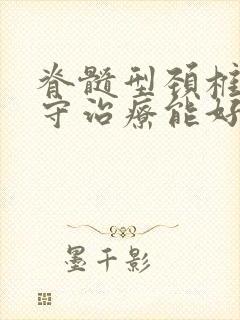 脊髓型颈椎
守治疗能好
墨千影